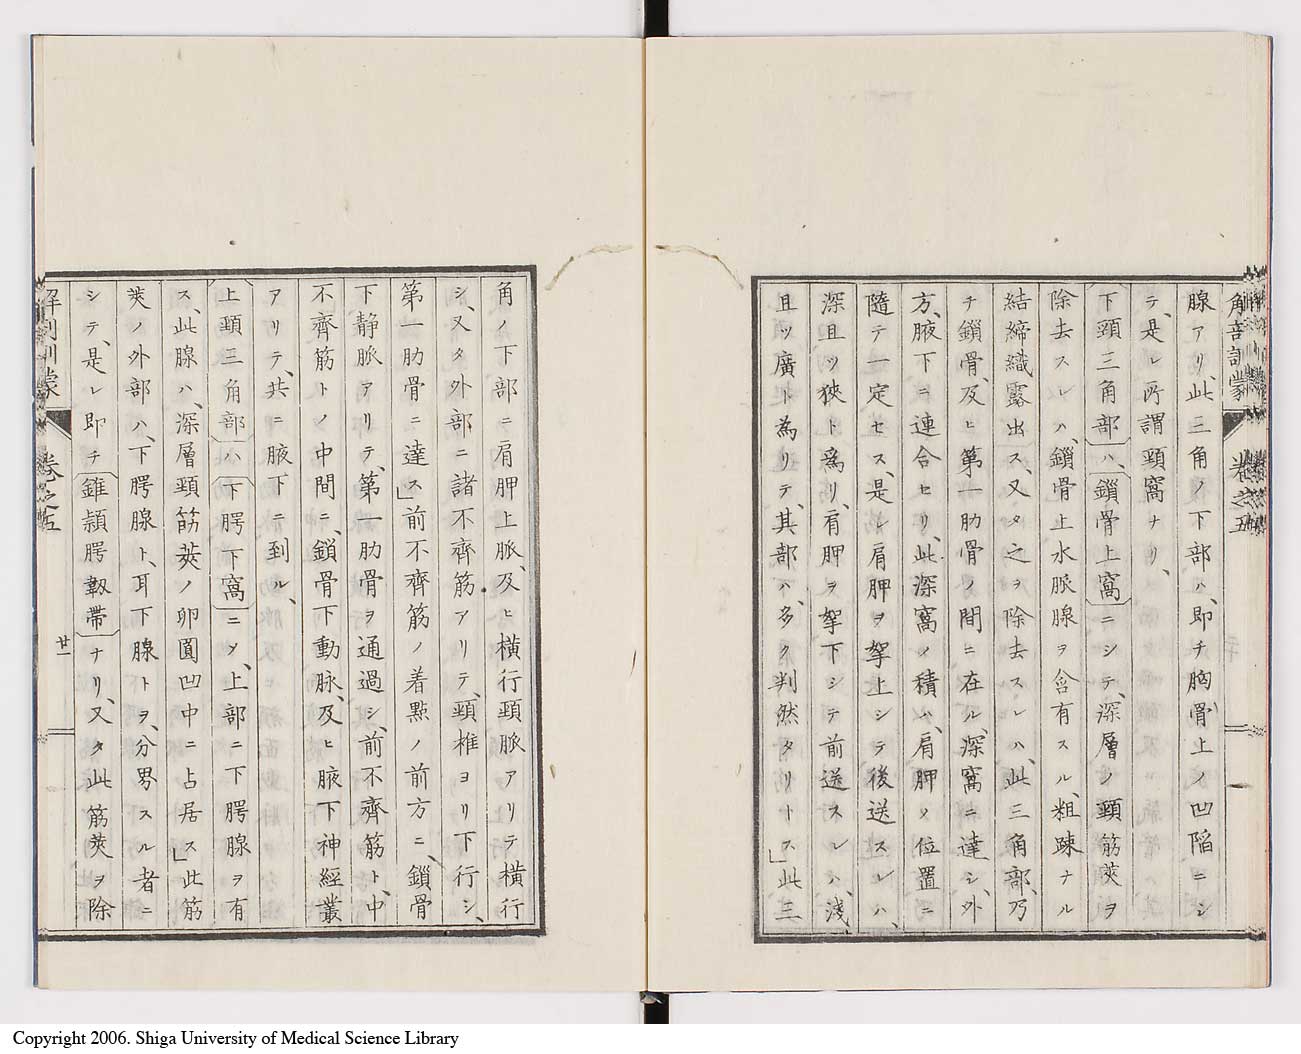 腺アリ、此三角ノ下部ハ、即チ胸骨上ノ凹陷ニシ
テ、是レ所謂頸窩ナリ、
下頸三角部ハ、鎖骨上窩ニシテ、深層ノ頸筋莢ヲ
除去スレハ、鎖骨上水脈腺ヲ含有スル、粗疎ナル
結締織露出ス、又タ之ヲ除去スレハ、此三角部、乃
チ鎖骨、及ヒ第一肋骨ノ間ニ在ル、深窩ニ達シ、外
方、腋下ニ連合セリ、此深窩ノ積ハ、肩胛ノ位置ニ
隨テ一定セス、是レ肩胛ヲ挐上シテ後送スレハ、
深且ツ狹ト爲リ、肩胛ヲ挐下シテ前送スレハ、淺
且ツ廣ト為リテ、其部ハ、多ク判然タリトス」此三
角ノ下部ニ肩胛上脈、及ヒ横行頸脈アリテ横行
シ、又タ外部ニ諸不齊筋アリテ、頸椎ヨリ下行シ、
第一肋骨ニ達ス」前不齊筋ノ着點ノ前方ニ、鎖骨
下静脈アリテ、第一肋骨ヲ通過シ、前不齊筋ト、中
不齊筋トノ中間ニ、鎖骨下動脉、及ヒ腋下神經叢
アリテ、共ニ腋下ニ到ル、
上頸三角部ハ下腭下窩ニメ、上部ニ下腭腺ヲ有
ス、此腺ハ、深層頸筋莢ノ卵圓凹中ニ占居ス」此筋
莢ノ外部ハ、下腭腺ト、耳下腺トヲ、分界スル者ニ
シテ、是レ即チ錐頴腭靱帶ナリ、又タ此筋莢ヲ除
解剖訓蒙 卷之五 廿一